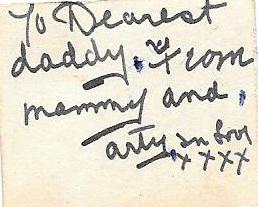 To Dearest
daddy. From
mammy and
arty. in love
xxxx